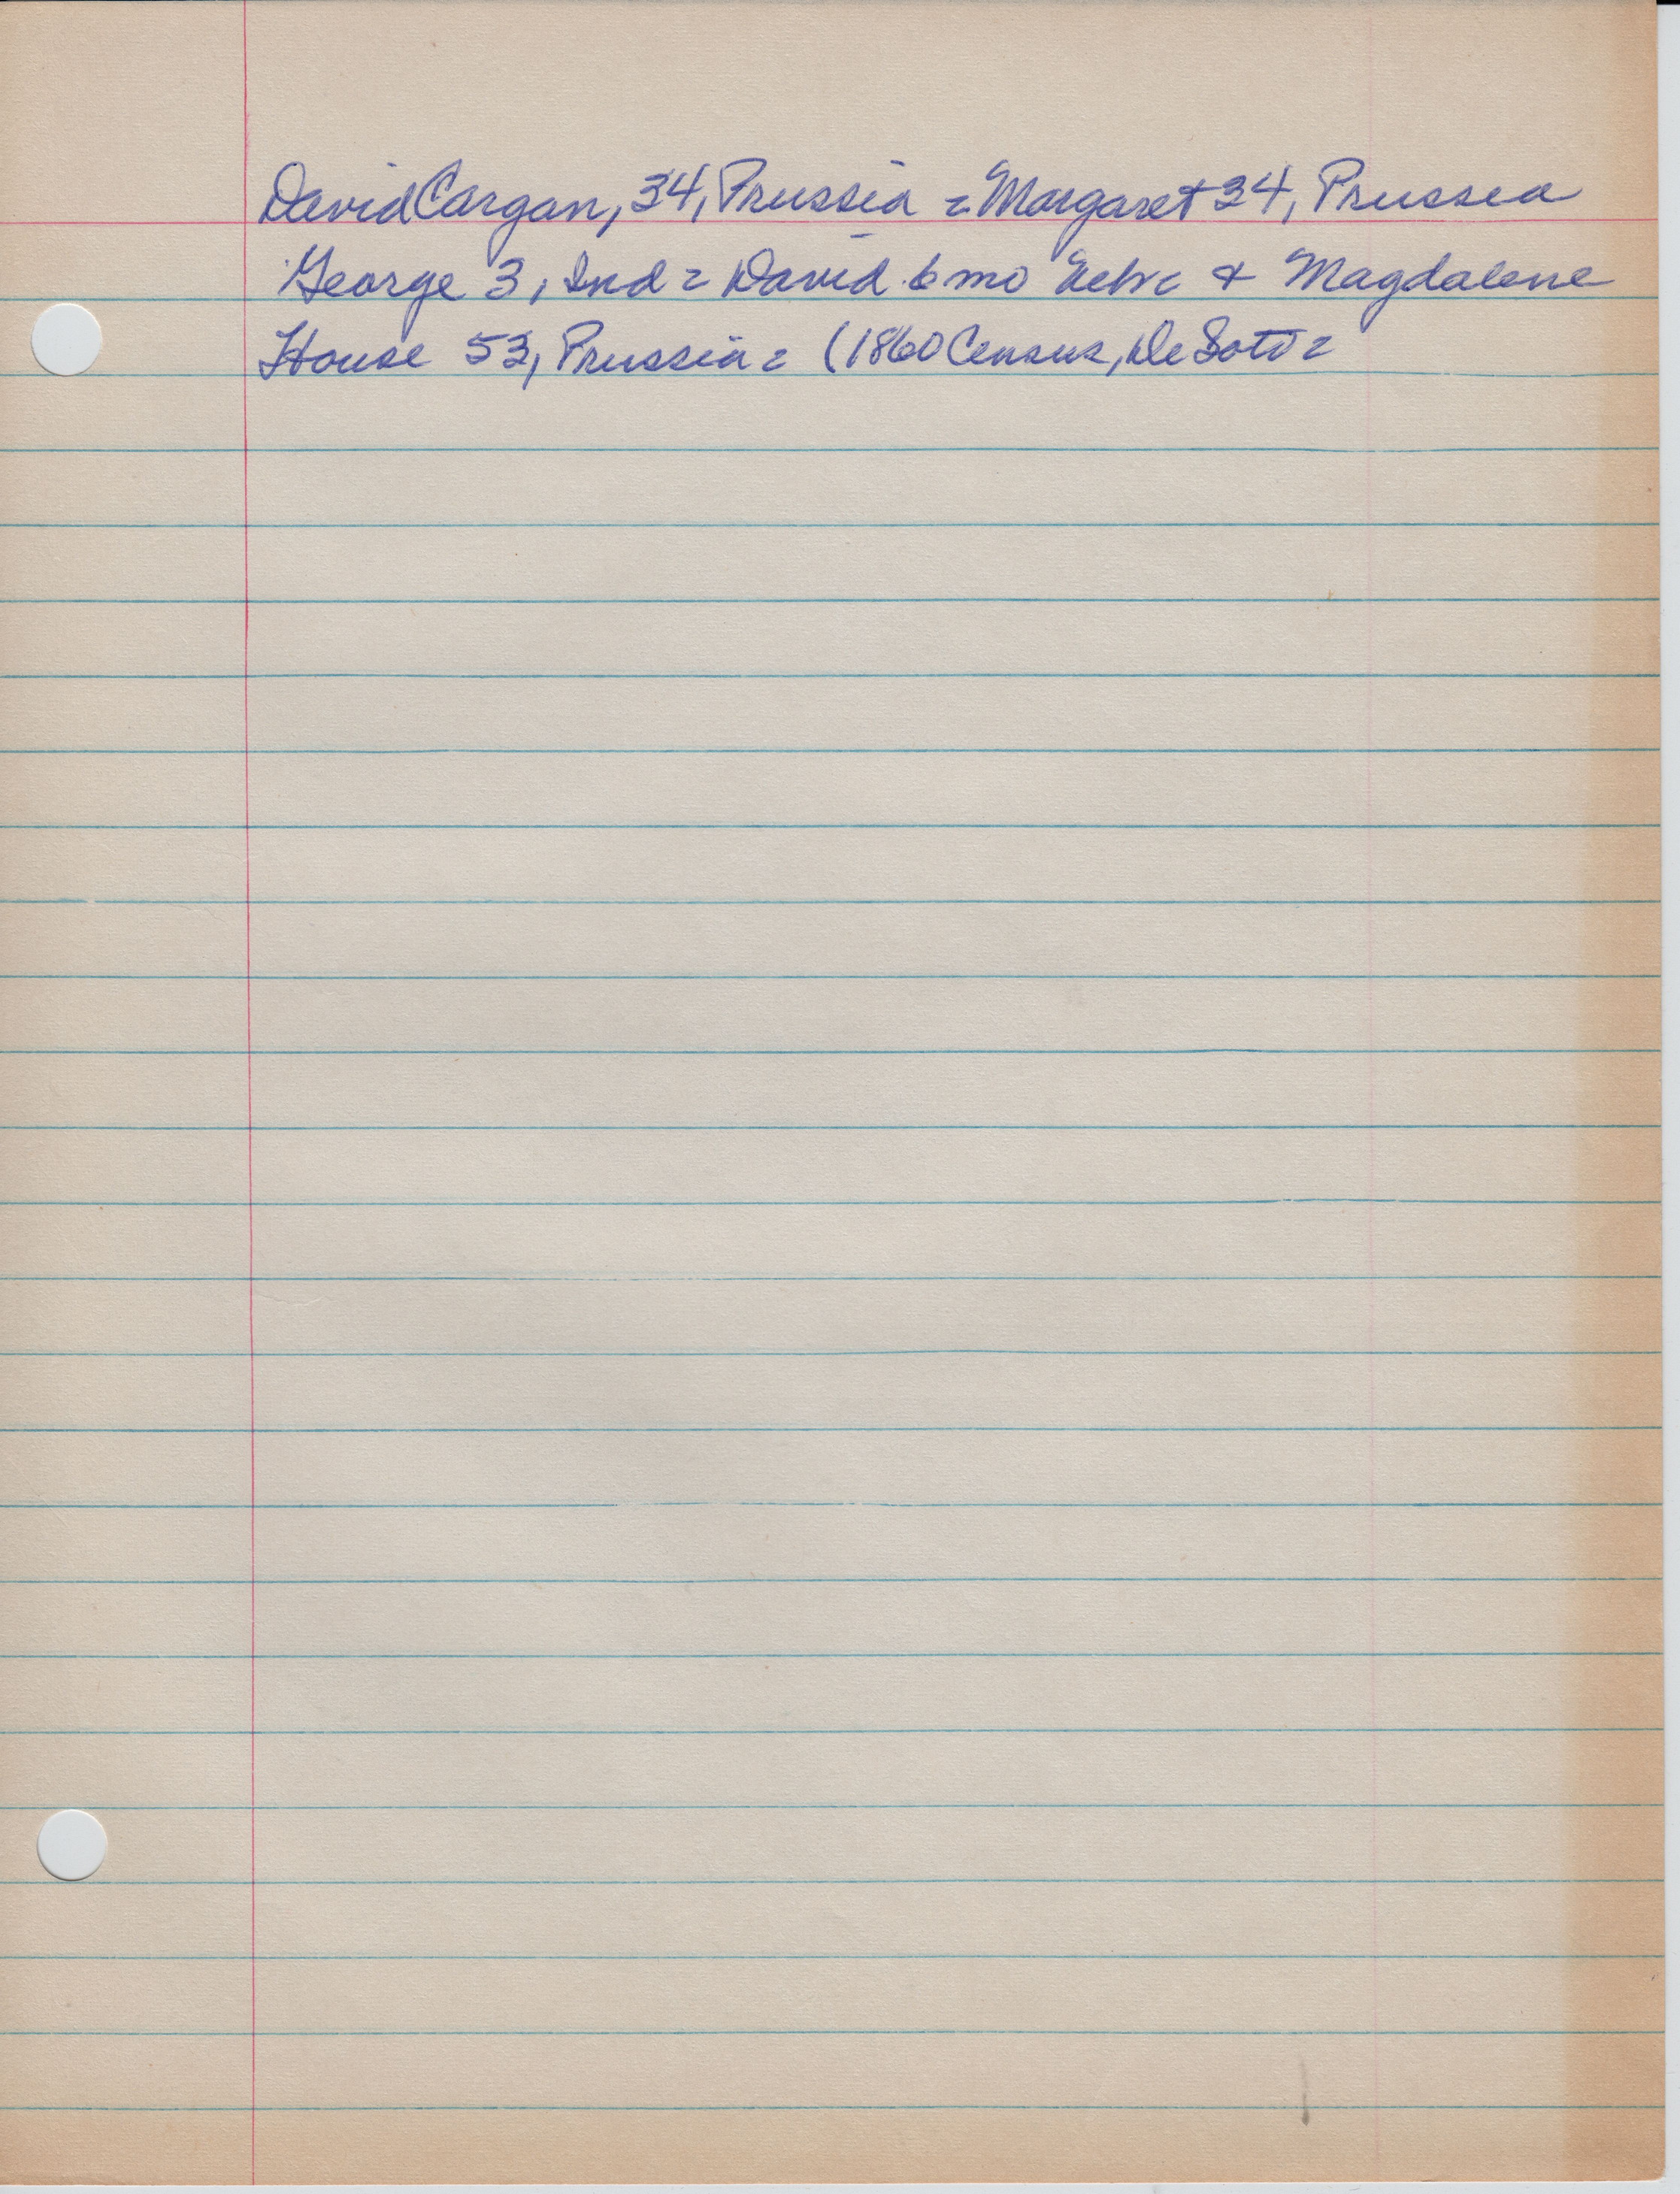 David Cargan, 34, Prussia = Margaret 34, Prussia
George 3, Ind = David 6 mo Nebr & Magdalene
House 53, Prussia = (1860 Census, De Soto =